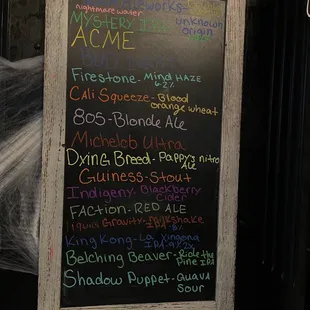 nightmare water
MYSTERY - unknown origin
ACME
Firestone - Mind HAZE
6.2%
Cali Squeeze - Blood orange wheat
805 - Blonde Ale
Michelob Ultra
Dying Breed - Pappy nitro Ale
Guiness - Stout
Indigeny - Blackberry Cider
FACTION - RED ALE
Liquid Gravity - Milkshake IPA
King Kong - La
Belching Beaver - Ride the Pine IPA
Shadow Puppet - Guava Sour